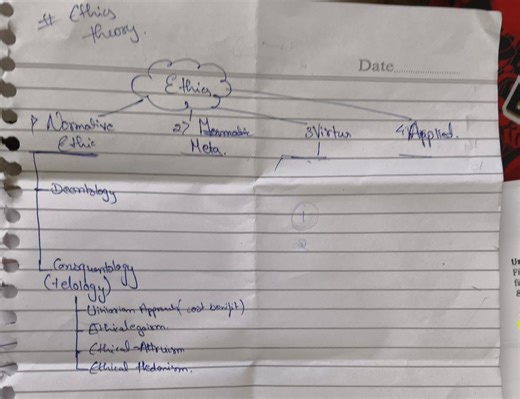 # Ethics
theory.
Date
Ethics
1> Normative
Ethic
2>
Meta.
3 Virtur
4 Applied.
Deontology
Consquentology
(telology)
Utilitarian Approach (cost benifit)
Ethical egoism.
Ethical Altruism
Ethical Hedonism.
1